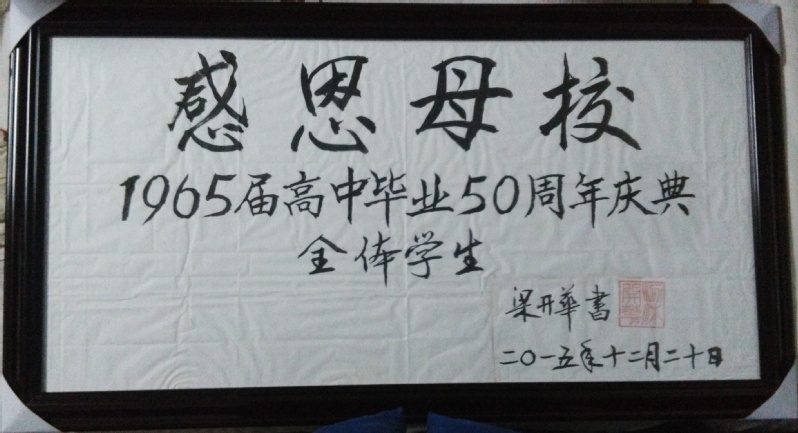 感恩母校
1965届高中毕业50周年庆典
全体学生
梁开華書
二〇一五年十二月二十日